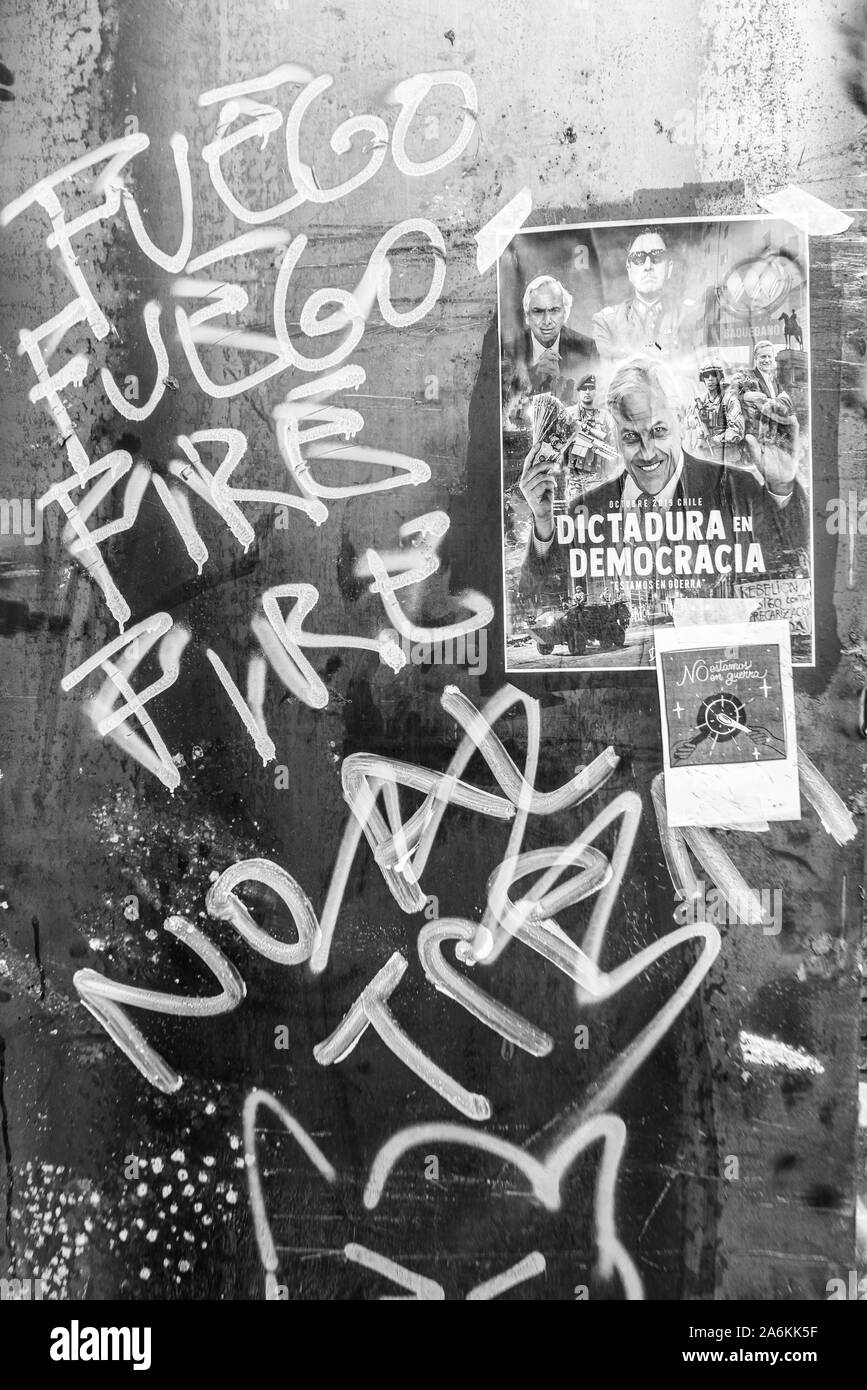 FUEGO
FUEGO
FIRE
FIRE
NO AL
BAQUEDANO
OCTUBRE 2019 CHILE
DICTADURA EN
DEMOCRACIA
"ESTAMOS EN GUERRA"
REBELION
NO estamos
en guerra
a
alamy
Image ID: 2A6KK5F
www.alamy.com